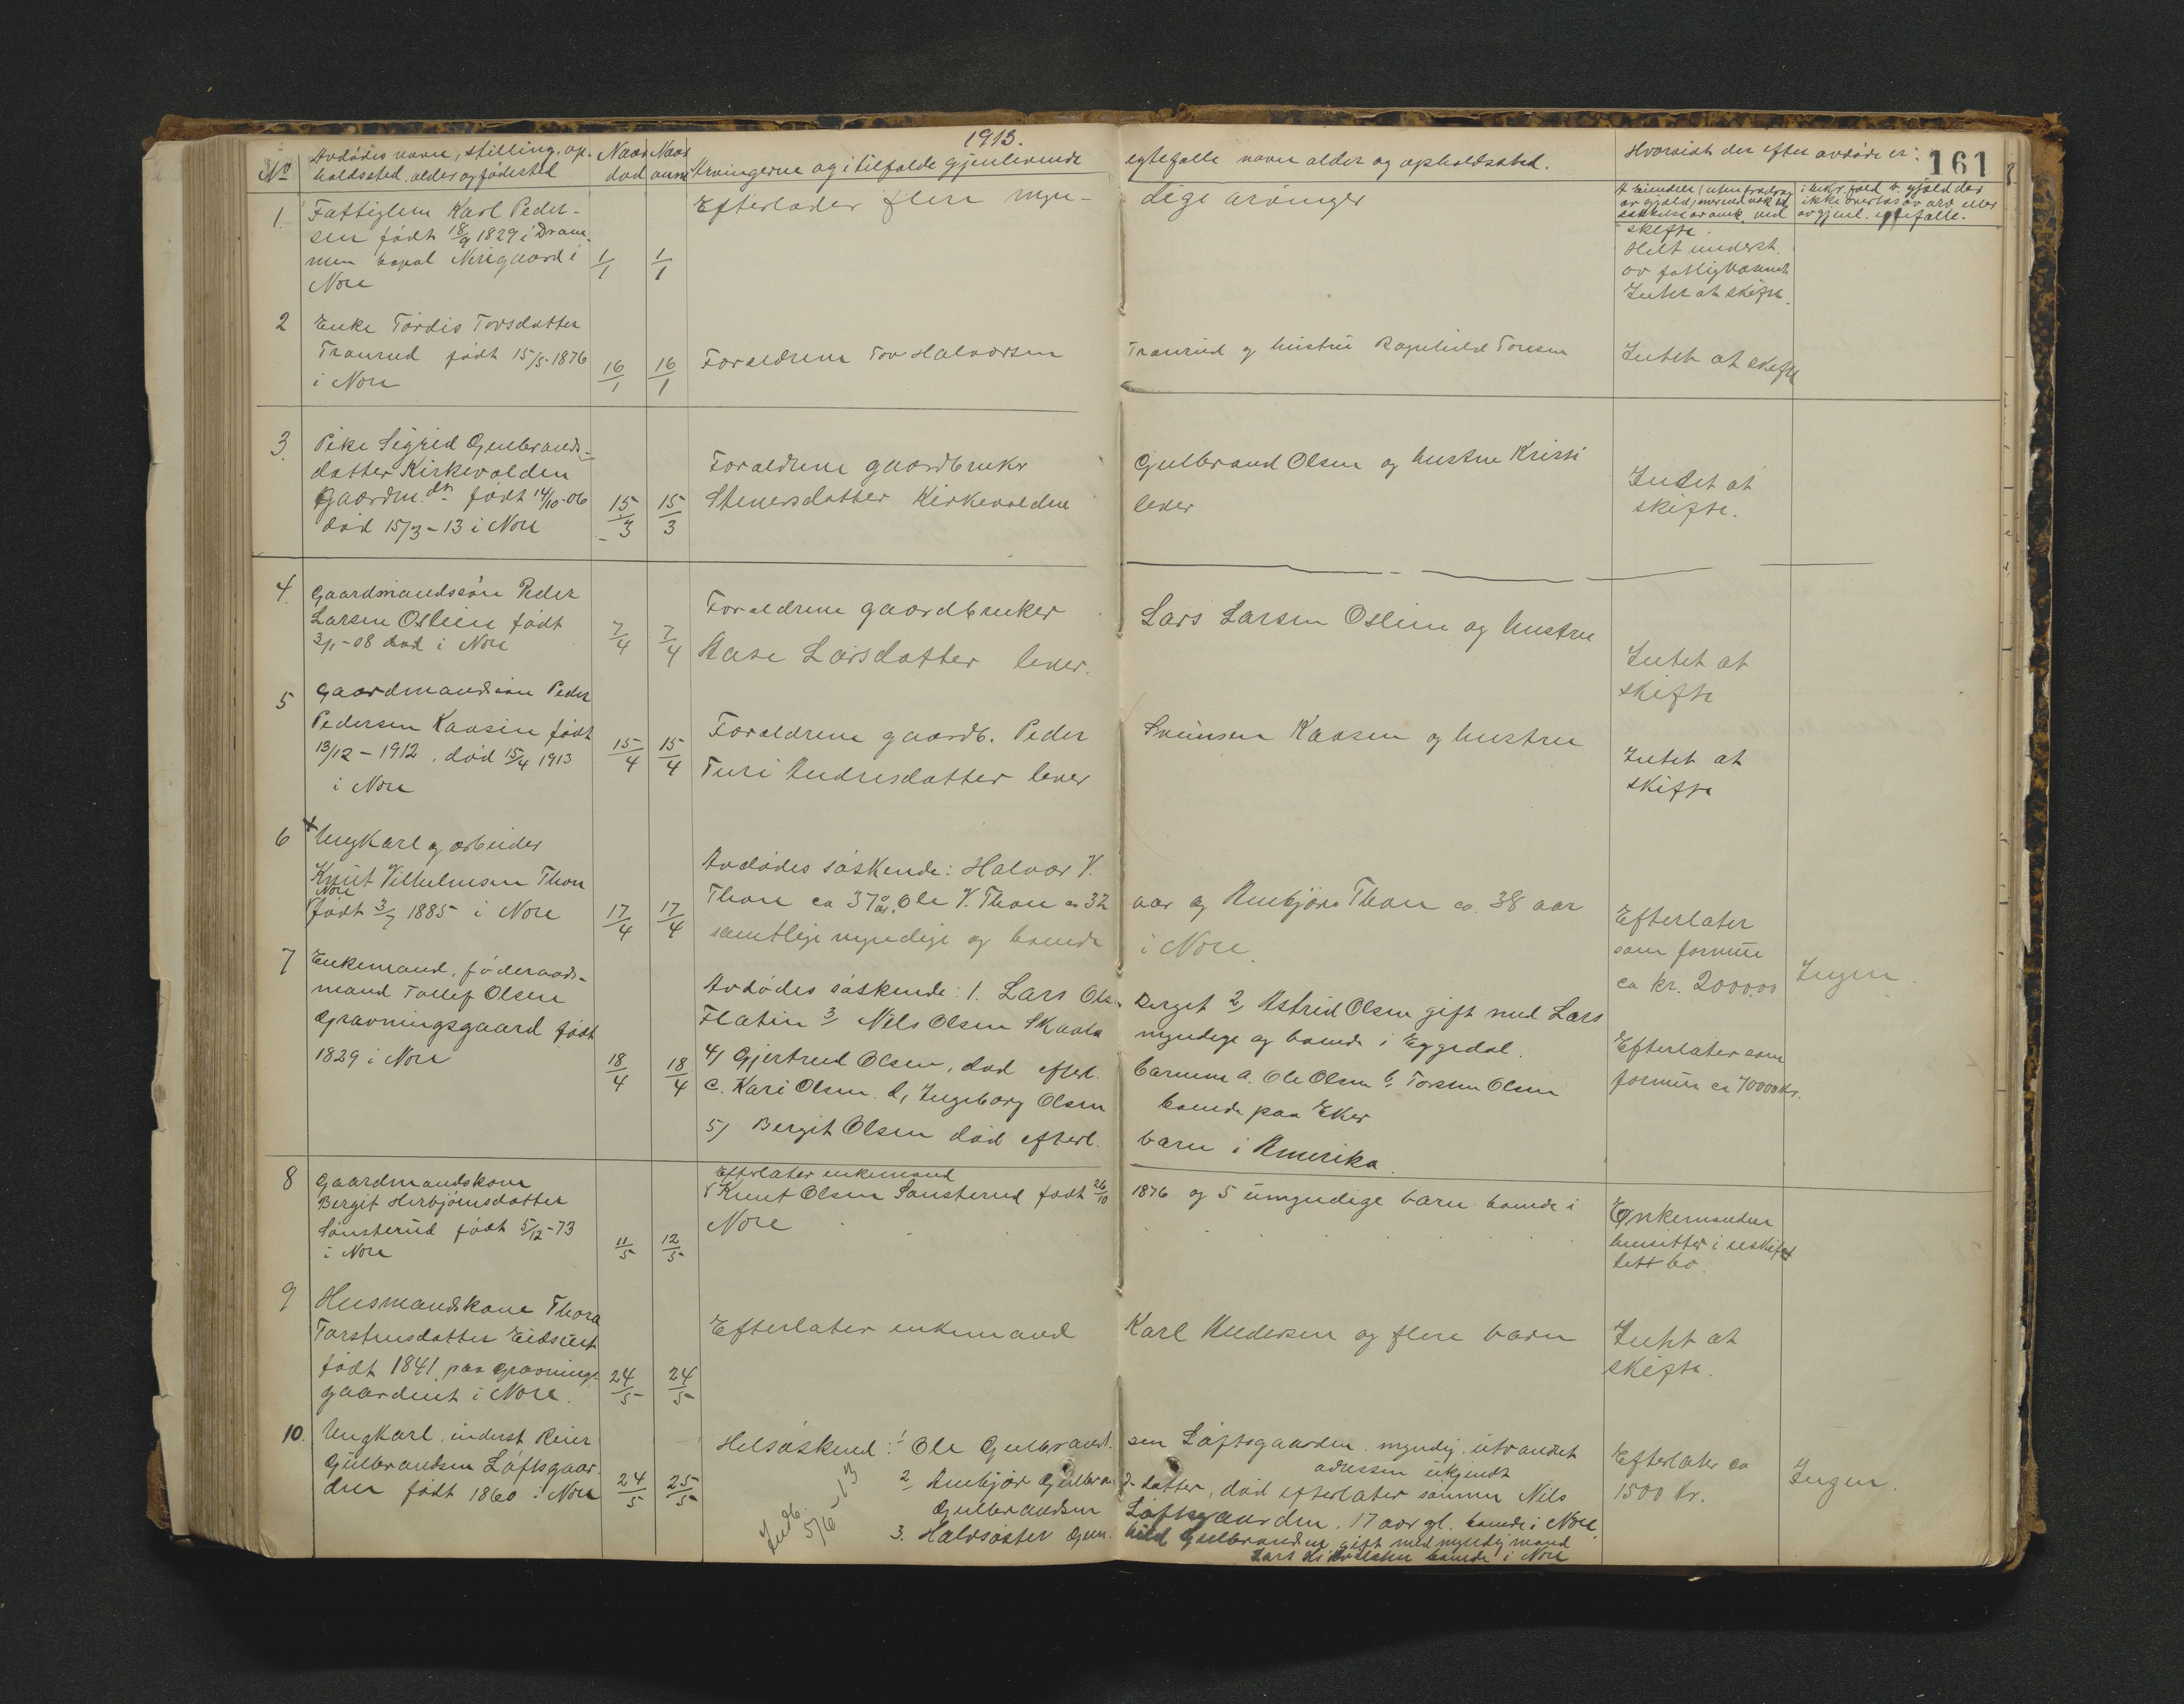 1913.
161
No
Avdødes navn, stilling, op-
holdssted, alder og fødested
Naar
død
Naar
anm
Arvingerne og i tilfælde gjenlevende
egtefælle navn alder og opholdssted.
Hvorvidt der efter avdøde er:
skifte.
1.
Fattiglem Karl Peder-
sen født 18/9 1829 i Dram-
men bopæl Nerigaard i
Nore
1/1
1/1
Efterlader flere myn-
dige arvinger
Helt underst.
av fattigvæsenet
Intet at skifte.
2
Enke Tordis Torsdatter
Tranrud født 15/5-1876
i Nore
16/1
16/1
Forældrene Tov Halvorsen
Tranrud og hustru Ragnhild Toresen
Intet at skifte
3.
Pike Sigrid Gulbrands-
datter Kirkevolden
Gaardm. dtr. født 14/10-06
død 15/3-13 i Nore
15/3
15/3
Forældrene gaardbruker
Gulbrand Olsen og hustru Kristi
Steversdatter Kirkevolden
lever
Intet at
skifte.
4.
Gaardmandssøn Peder
Larsen Oslien født
3/1-08 død i Nore
7/4
7/4
Forældrene gaardbruker
Lars Larsen Oslien og hustru
Aase Larsdatter lever.
Intet at
skifte
5
Gaardmandssøn Peder
Pedersen Kaasin født
13/12-1912, død 15/4 1913
i Nore
15/4
15/4
Forældrene gaardb. Peder
Sveinsen Kaasen og hustru
Turi Andresdatter lever
Intet at
skifte
6
Ungkarl og arbeider
Knut Vilhelmsen Thon
Nore
født 3/7 1885 i Nore
17/4
17/4
Avdødes søskende: Halvor V.
Thon ca 37 aar. Ole V. Thon ca 32
aar og Anbjørg Thon ca. 38 aar
samtlige myndige og boende
i Nore.
Efterlater
som formue
ca kr. 200.00
Ingen.
7
Enkemand, føderaads-
mand Tollef Olsen
Gravningsgaard født
1829 i Nore
18/4
18/4
Avdødes søskende: 1. Lars Olsen
Berget 2, Astrid Olsen gift med Lars
Flatin 3, Nils Olsen Skaala
myndige og boende i Eggedal.
4, Gjertrud Olsen, død efterl.
barnene a. Ole Olsen b, Torsten Olsen
c. Kari Olsen d, Ingeborg Olsen
boende paa Eker
5, Bergit Olsen død efterl.
barn i Amerika.
Efterlater som
formue ca 7000 kr.
8
Gaardmandskone
Bergit Herbjørnsdatter
Sønsterud født 5/12-73
i Nore
11/5
12/5
Efterlater enkemand
Knut Olsen Sønsterud født 26/10
1876 og 5 umyndige barn boende i
Nore
Enkemanden
hensitter i uskiftet
bo.
9
Husmandskone Thora
Torstensdatter Eidsiet
født 1841 paa Gravnings-
gaardeiet i Nore.
24/5
24/5
Efterlater enkemand
Karl Andersen og flere barn
Intet at
skifte.
10.
Ungkarl inderst Reier
Gulbrandsen Løftsgaar-
den født 1860 i Nore
24/5
25/5
Helsøskend: 1 Ole Gulbrand-
sen Løftsgaarden myndig utvandret
adressen ukjendt
2 Anbjør Gulbran-
datter, død efterlater sønnen Nils
Gulbrandsen
Løftsgaarden. 17 aar gl. boende i Nore.
3. Halvsøster Gun-
hild Gulbrandsen gift med myndig mand
boende i Nore
Efterlater ca
1500 kr.
Ingen.
Indb.
5/6-13